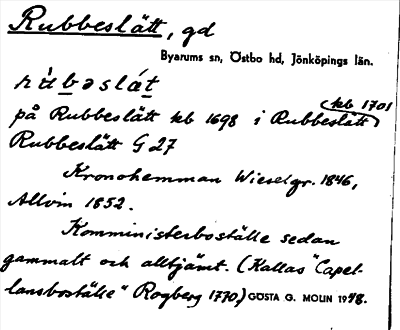 Rubbeslätt, gd
Byarums sn, Östbo hd, Jönköpings län.
rùbəslät
(kb 1701
på Rubbeslätt kb 1698 i Rubbeslätt)
Rubbeslätt G 27
Kronohemman Wieselgr. 1846,
Allvin 1852.
Komministerboställe sedan
gammalt och alltjämt. (Kallas "Capel-
lansboställe" Rogberg 1770,) GÖSTA G. MOLIN 1948.